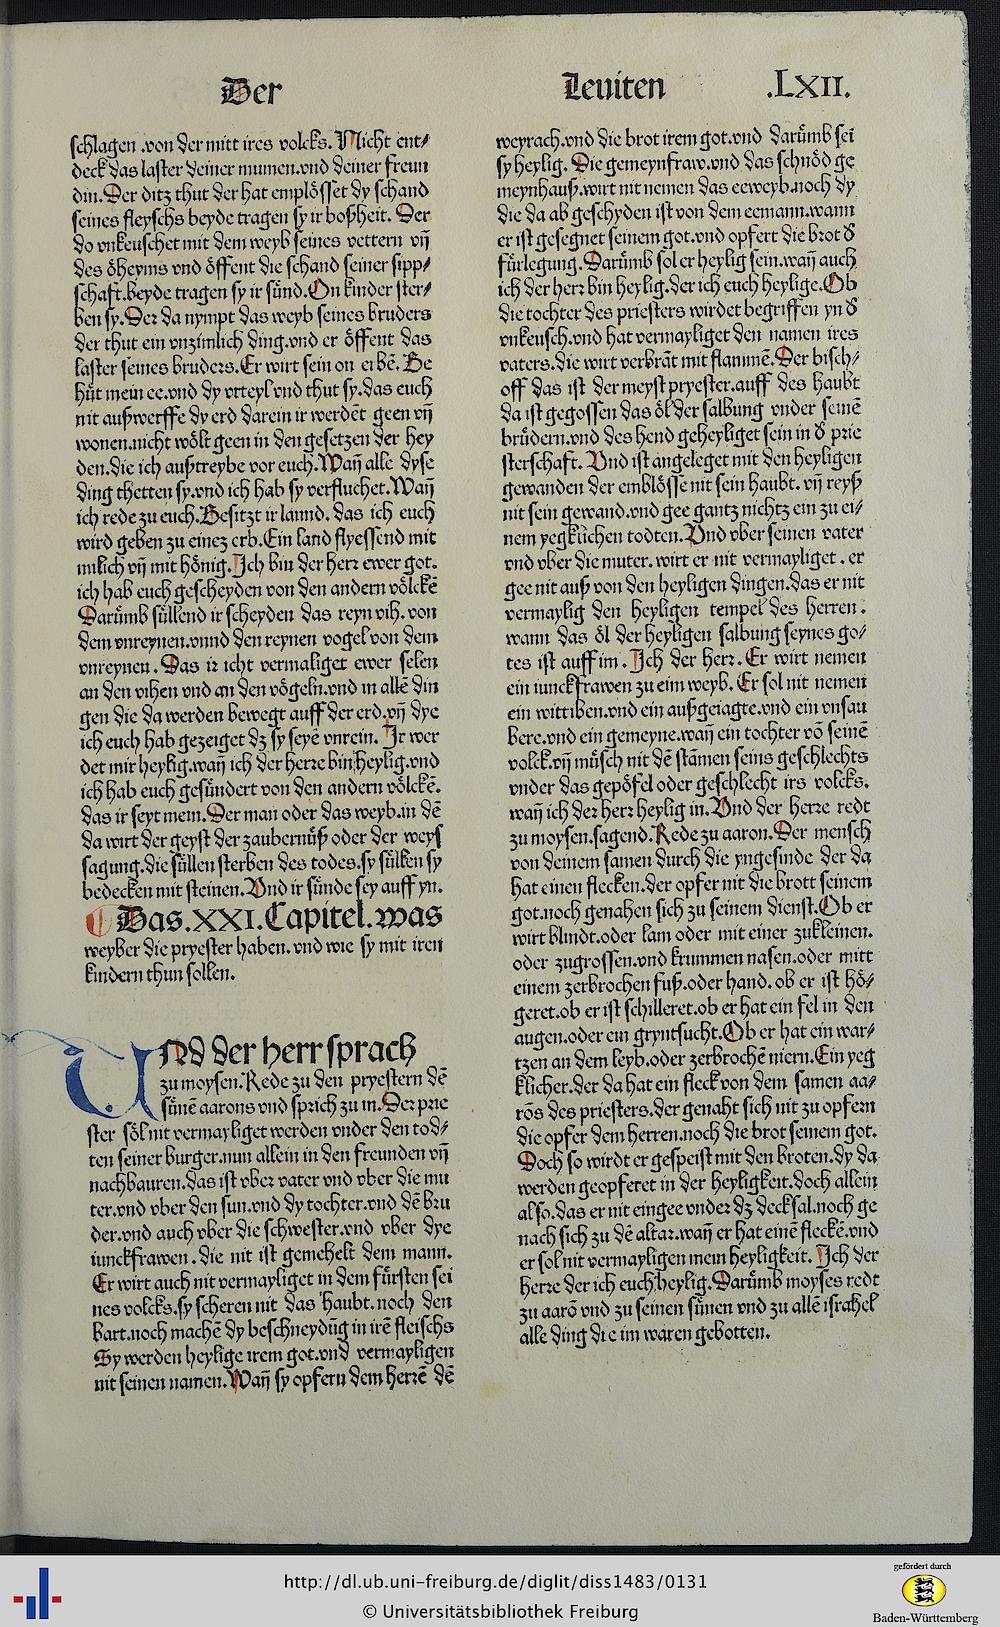 Der Leuiten .LXII.
schlagen .von der mitt ires volcks. Nicht ent⸗
deck das laster deiner mumen.vnd deiner freun
din. Der ditz thut der hat emplösset dy schand
seines fleyschs beyde tragen sy ir boßheit. Der
do vnkeuschet mit dem weyb seines vettern vñ
des öheyms vnd öffent die schand seiner sipp⸗
schaft.beyde tragen sy ir sünd.On kinder ster⸗
ben sy.Der da nympt das weyb seines bruders
der thut ein vnzimlich ding.vnd er öffent das
laster seines bruders.Er wirt sein on erbē. Be
hüt mein ee.vnd dy vrteyl vnd thut sy.das euch
nit außwerffe dy erd darein ir werdēt geen vñ
wonen.nicht wölt geen in den gesetzen der hey
den.die ich außtreybe vor euch.Wañ alle dyse
ding thetten sy.vnd ich hab sy verfluchet.Wañ
ich rede zu euch.Besitzt ir lannd. das ich euch
wird geben zu einez erb.Ein land flyessend mit
milich vñ mit hönig.Ich bin der herr ewer got.
ich hab euch gescheyden von den andern völckē
Darümb süllend ir scheyden das reyn vih. von
dem vnreynen.vnnd den reynen vogel von dem
vnreynen. Das ir icht vermaliget ewer selen
an den vihen vnd an den vögeln.vnd in allē din
gen die da werden bewegt auff der erd.vñ dye
ich euch hab gezeiget dz sy seyē vnrein. Ir wer
det mir heylig.wañ ich der herre bin heylig.vnd
ich hab euch gesündert von den andern völckē.
das ir seyt mein.Der man oder das weyb.in dē
da wirt der geyst der zaubernüß oder der weys
sagung.die süllen sterben des todes.sy süllen sy
bedecken mit steinen.Vnd ir sünde sey auff yn.
¶ Das.XXI.Capitel.was
weyber die pryester haben. vnd wie sy mit iren
kindern thun sollen.
VNd der herr sprach
zu moysen.Rede zu den pryestern dē
sünē aarons vnd sprich zu in.Der prie
ster söl nit vermayliget werden vnder den tod⸗
ten seiner burger.nun allein in den freunden vñ
nachbauren.das ist vber vater vnd vber die mu
ter.vnd vber den sun.vnd dy tochter.vnd dē bru
der.vnd auch vber die schwester.vnd vber dye
iunckfrawen. die nit ist gemehelt dem mann.
Er wirt auch nit vermayliget in dem fürsten sei
nes volcks.sy scheren nit das haubt.noch den
bart.noch machē dy beschneydūg in irē fleischs
Sy werden heylige irem got.vnd vermayligen
nit seinen namen.Wañ sy opfern dem herrē dē
weyrach.vnd die brot irem got.vnd darümb sei
sy heylig. Die gemeynfraw.vnd das schnöd ge
meynhauß.wirt nit nemen das eeweyb.noch dy
die da ab geschyden ist von dem eemann.wann
er ist gesegnet seinem got.vnd opfert die brot d̕
fürlegung.Darümb sol er heylig sein.wañ auch
ich der herr bin heylig.der ich euch heylige.Ob
die tochter des priesters wirdet begriffen yn d̕
vnkeusch.vnd hat vermayliget den namen ires
vaters.die wirt verbrāt mit flammē.Der bisch⸗
off das ist der meyst pryester.auff des haubt
da ist gegossen das öl der salbung vnder seinē
brüdern.vnd des hend geheyliget sein in d̕ prie
sterschaft. Vnd ist angeleget mit den heyligen
gewanden der emblösse nit sein haubt. vñ reyß
nit sein gewand.vnd gee gantz nichtz ein zu ei⸗
nem yegklichen todten.Vnd vber seinen vater
vnd vber die muter.wirt er nit vermayliget . er
gee nit auß von den heyligen dingen.das er nit
vermaylig den heyligen tempel des herren.
wann das öl der heyligen salbung seynes go⸗
tes ist auff im . Ich der herr. Er wirt nemen
ein iunckfrawen zu eim weyb. Er sol nit nemen
ein wittiben.vnd ein außgeiagte.vnd ein vnsau
bere.vnd ein gemeyne.wañ ein tochter vō seinē
volck.vñ müsch nit dē stāmen seins geschlechts
vnder das gepöfel oder geschlecht irs volcks.
wañ ich der herr heylig in.Vnd der herre redt
zu moysen.sagend.Rede zu aaron.Der mensch
von deinem samen durch die yngesinde der da
hat einen flecken.der opfer nit die brott seinem
got.noch genahen sich zu seinem dienst.Ob er
wirt blindt.oder lam oder mit einer zukleinen.
oder zugrossen.vnd krummen nasen.oder mitt
einem zerbrochen fuß.oder hand. ob er ist hö⸗
geret.ob er ist schilleret.ob er hat ein fel in den
augen.oder ein gryntsucht.Ob er hat ein war⸗
tzen an dem leyb.oder zerbrochē niern.Ein yeg
klicher.der da hat ein fleck von dem samen aa⸗
rōs des priesters.der genaht sich nit zu opfern
die opfer dem herren.noch die brot seinem got.
Doch so wirdt er gespeist mit den broten.dy da
werden geopferet in der heyligkeit.doch allein
also.das er nit eingee vnder dz decksal.noch ge
nach sich zu dē altar.wañ er hat einē fleckē.vnd
er sol nit vermayligen mein heyligkeit. Ich der
herre der ich euch heylig.Darümb moyses redt
zu aarō vnd zu seinen sünen vnd zu allē israhel
alle ding die im waren gebotten.
http://dl.ub.uni-freiburg.de/diglit/diss1483/0131
© Universitätsbibliothek Freiburg
gefördert durch
Baden-Württemberg